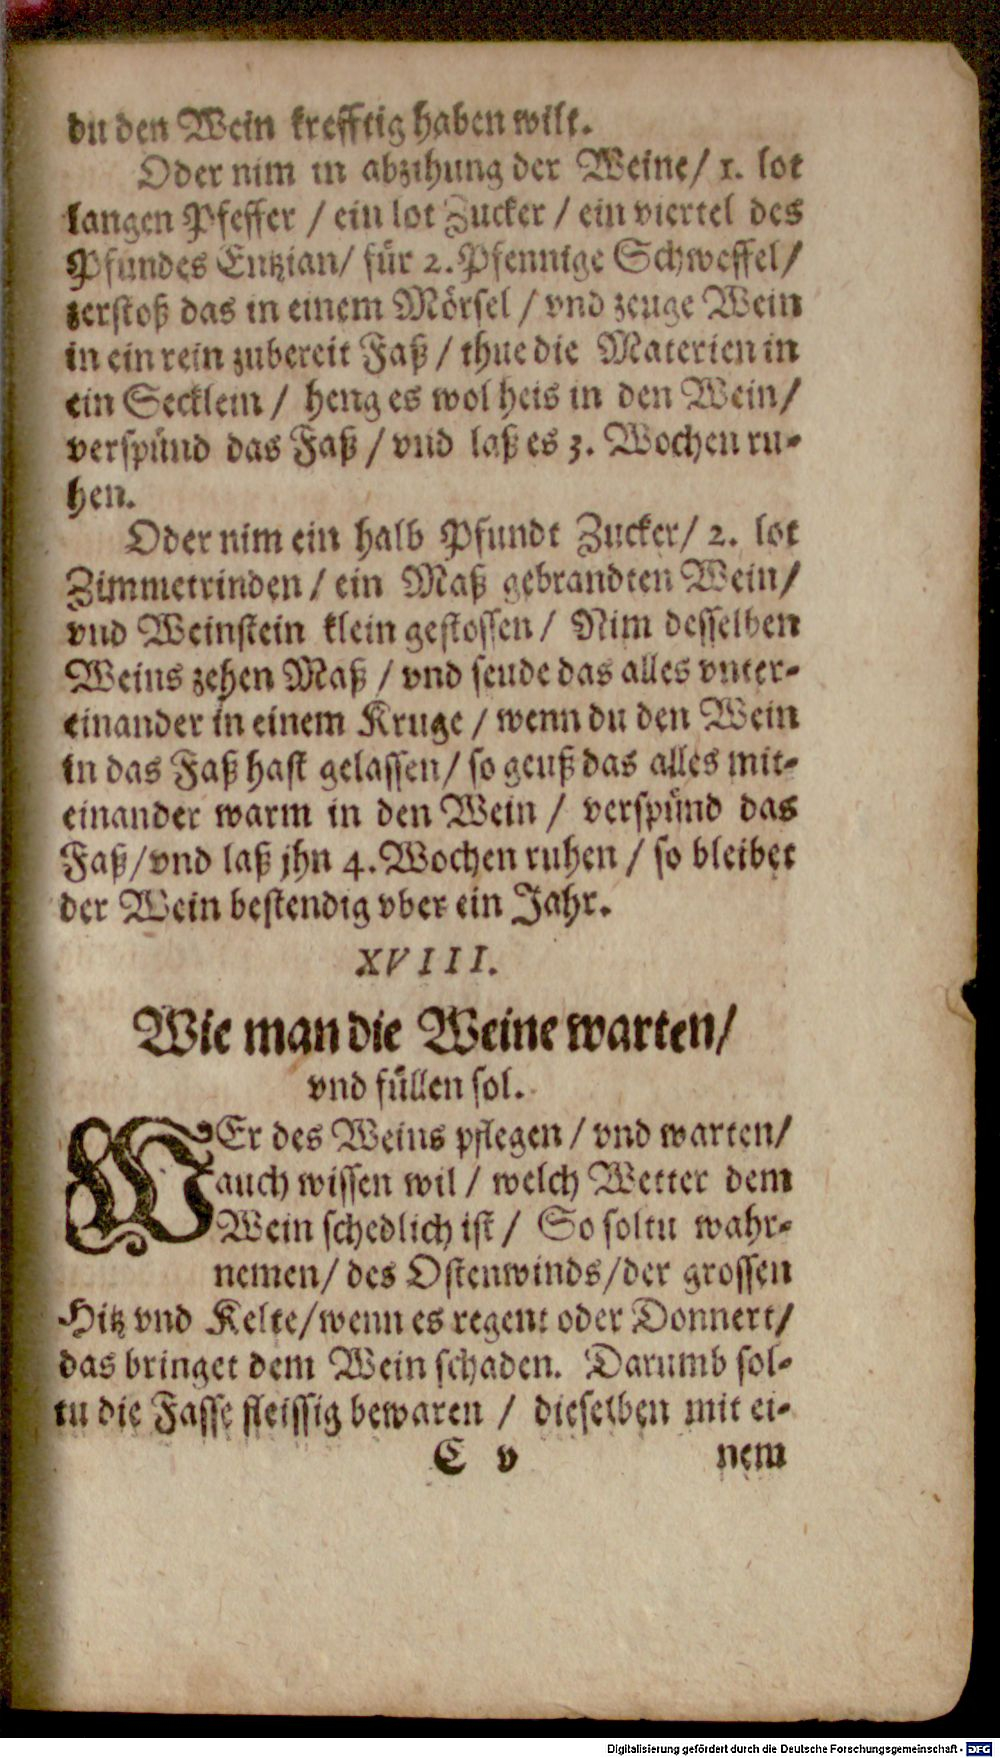 du den Wein krefftig haben wilt.
Oder nim in abzihung der Weine/ 1. lot
langen Pfeffer / ein lot Zucker / ein viertel des
Pfundes Entzian/ für 2. Pfennige Schweffel/
zerstoß das in einem Mörsel / vnd zeuge Wein
in ein rein zubereit Faß / thue die Materien in
ein Secklein / heng es wol heis in den Wein/
verspünd das Faß / vnd laß es 3. Wochen ru-
hen.
Oder nim ein halb Pfundt Zucker/ 2. lot
Zimmetrinden / ein Maß gebrandten Wein/
vnd Weinstein klein gestossen / Nim desselben
Weins zehen Maß / vnd seude das alles vnter-
einander in einem Kruge / wenn du den Wein
in das Faß hast gelassen/ so geuß das alles mit-
einander warm in den Wein / verspünd das
Faß/vnd laß jhn 4. Wochen ruhen / so bleibet
der Wein bestendig vber ein Jahr.
XVIII.
Wie man die Weine warten/
vnd füllen sol.
WEr des Weins pflegen / vnd warten/
auch wissen wil / welch Wetter dem
Wein schedlich ist / So soltu wahr-
nemen/ des Ostenwinds/der grossen
Hitz vnd Kelte/wenn es regent oder Donnert/
das bringet dem Wein schaden. Darumb sol-
tu die Fasse fleissig bewaren / dieselben mit ei-
C v nem
Digitalisierung gefördert durch die Deutsche Forschungsgemeinschaft - DFG